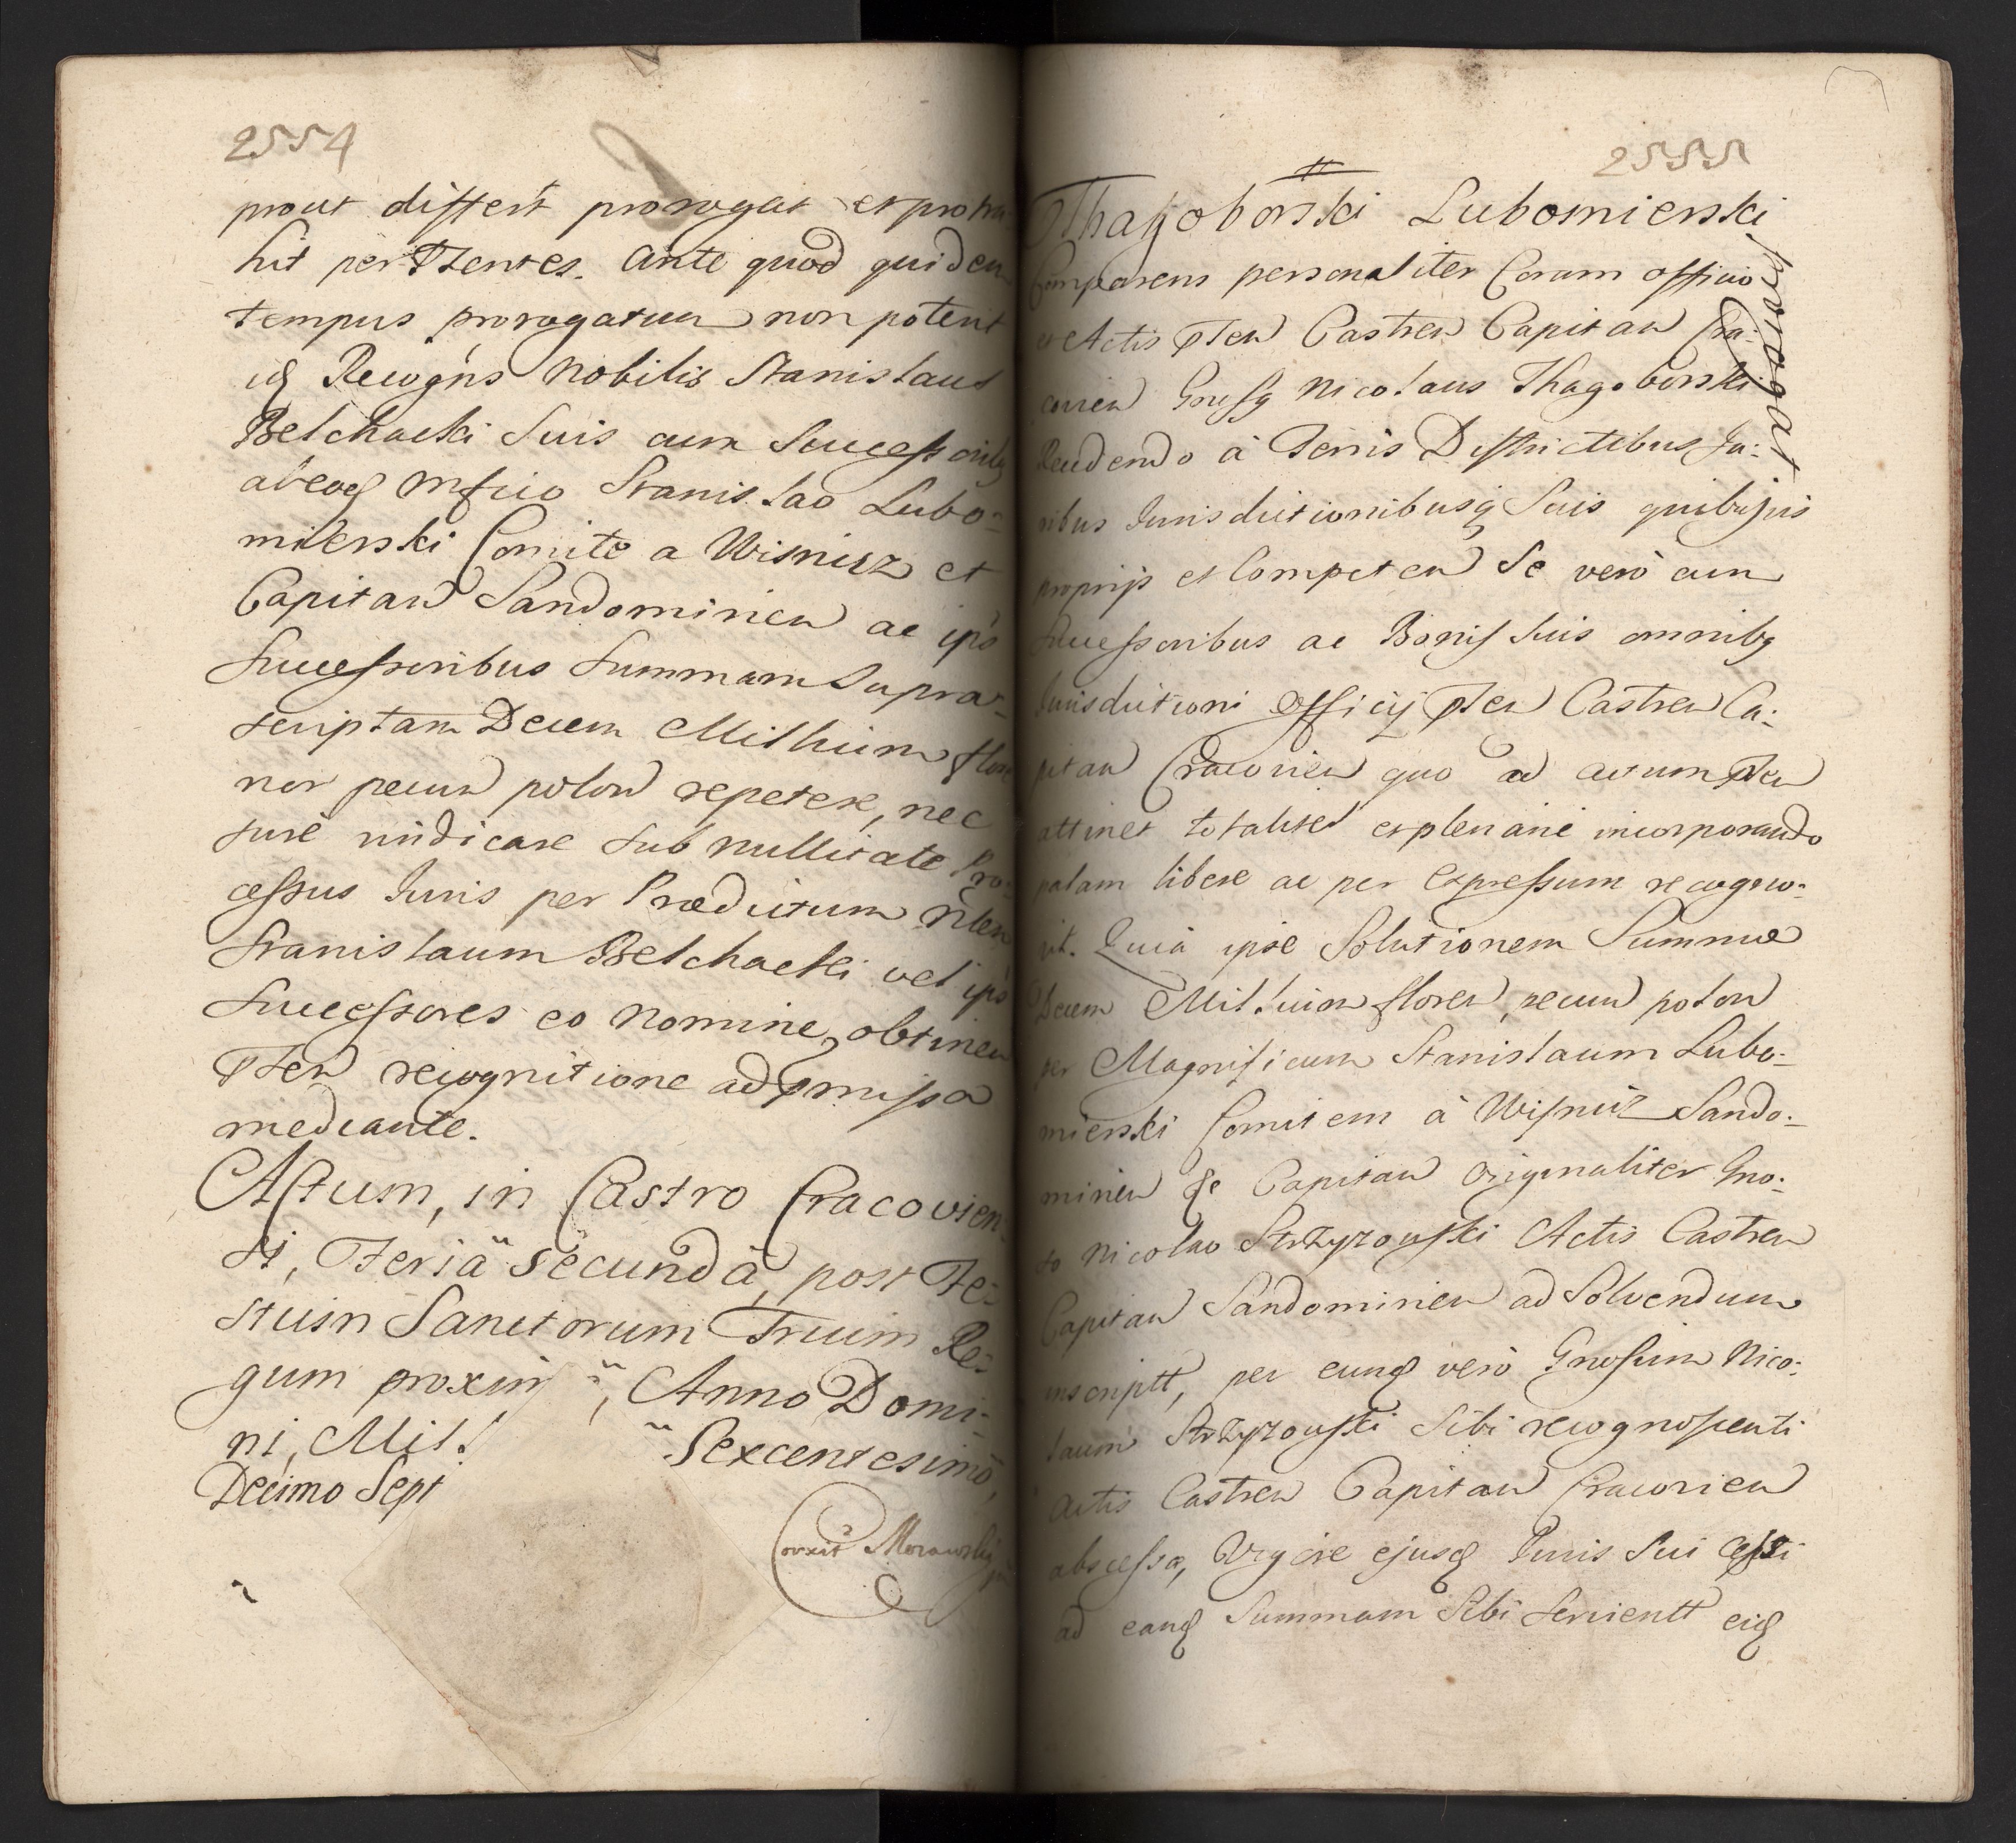 2554
prout differt prorogat et protra-
hit per Pntes. Ante quod quidem
tempus prorogatum non poterit
idq Recogns Nobilis Stanislaus
Belchacki suis cum Successoribq
ab eodq Mfico Stanislao Lubo-
mierski Comite a Wisnicz et
Capitan Sandomirien ac ips
Successoribus Summam Supra-
scriptam Decem Millium flor
nor pecun polon repetere, nec
jure vindicare sub nullitate Pro-
cessus Juris per Prædictum Nlem
Stanislaum Belchacki vel ips
Successores eo nomine obtinen
Pnten recognitione ad pmissa
mediante.
Actum, in Castro Cracovien-
si, Feria secunda, post Fe-
stum Sanctorum Trium Re-
gum proxim, Anno Domi-
ni, Mill Sexcentesimo,
Decimo Sept
Corxit Morawski
2555
Thagoborski Lubomierski
Comparens personaliter Coram officio
et Actis Pnten Castren Capitan Cra-
covien Gnrsq Nicolaus Thagoborski
Recedendo à Terris Districtibus Ju-
ribus Jurisdictionibusq Suis quibusvis
proprijs et Competen Se verò cum
Successoribus ac Bonis Suis omnibq
Jurisdictioni Officij Pnten Castren Ca-
pitan Cracovien quo ad actum Pnten
attinet totaliter et plenarie incorporando
palam libere ac per expressum recogno-
vit. Quià ipse Solutionem Summæ
Decem Millium floren pecun polon
per Magnificum Stanislaum Lubo-
mierski Comitem à Wisnicz Sando-
mirien Capitan Originaliter Gno-
so Nicolao Strzyzowski Actis Castren
Capitan Sandomirien ad Solvendum
inscriptt, per eundq verò Gnosum Nico-
laum Strzyzowski Sibi recognoscenti
Actis Castren Capitan Cracovien
abscessa, Vigore ejusdq Juris Sui Cessi
ad eandq Summam Sibi servientt eidq